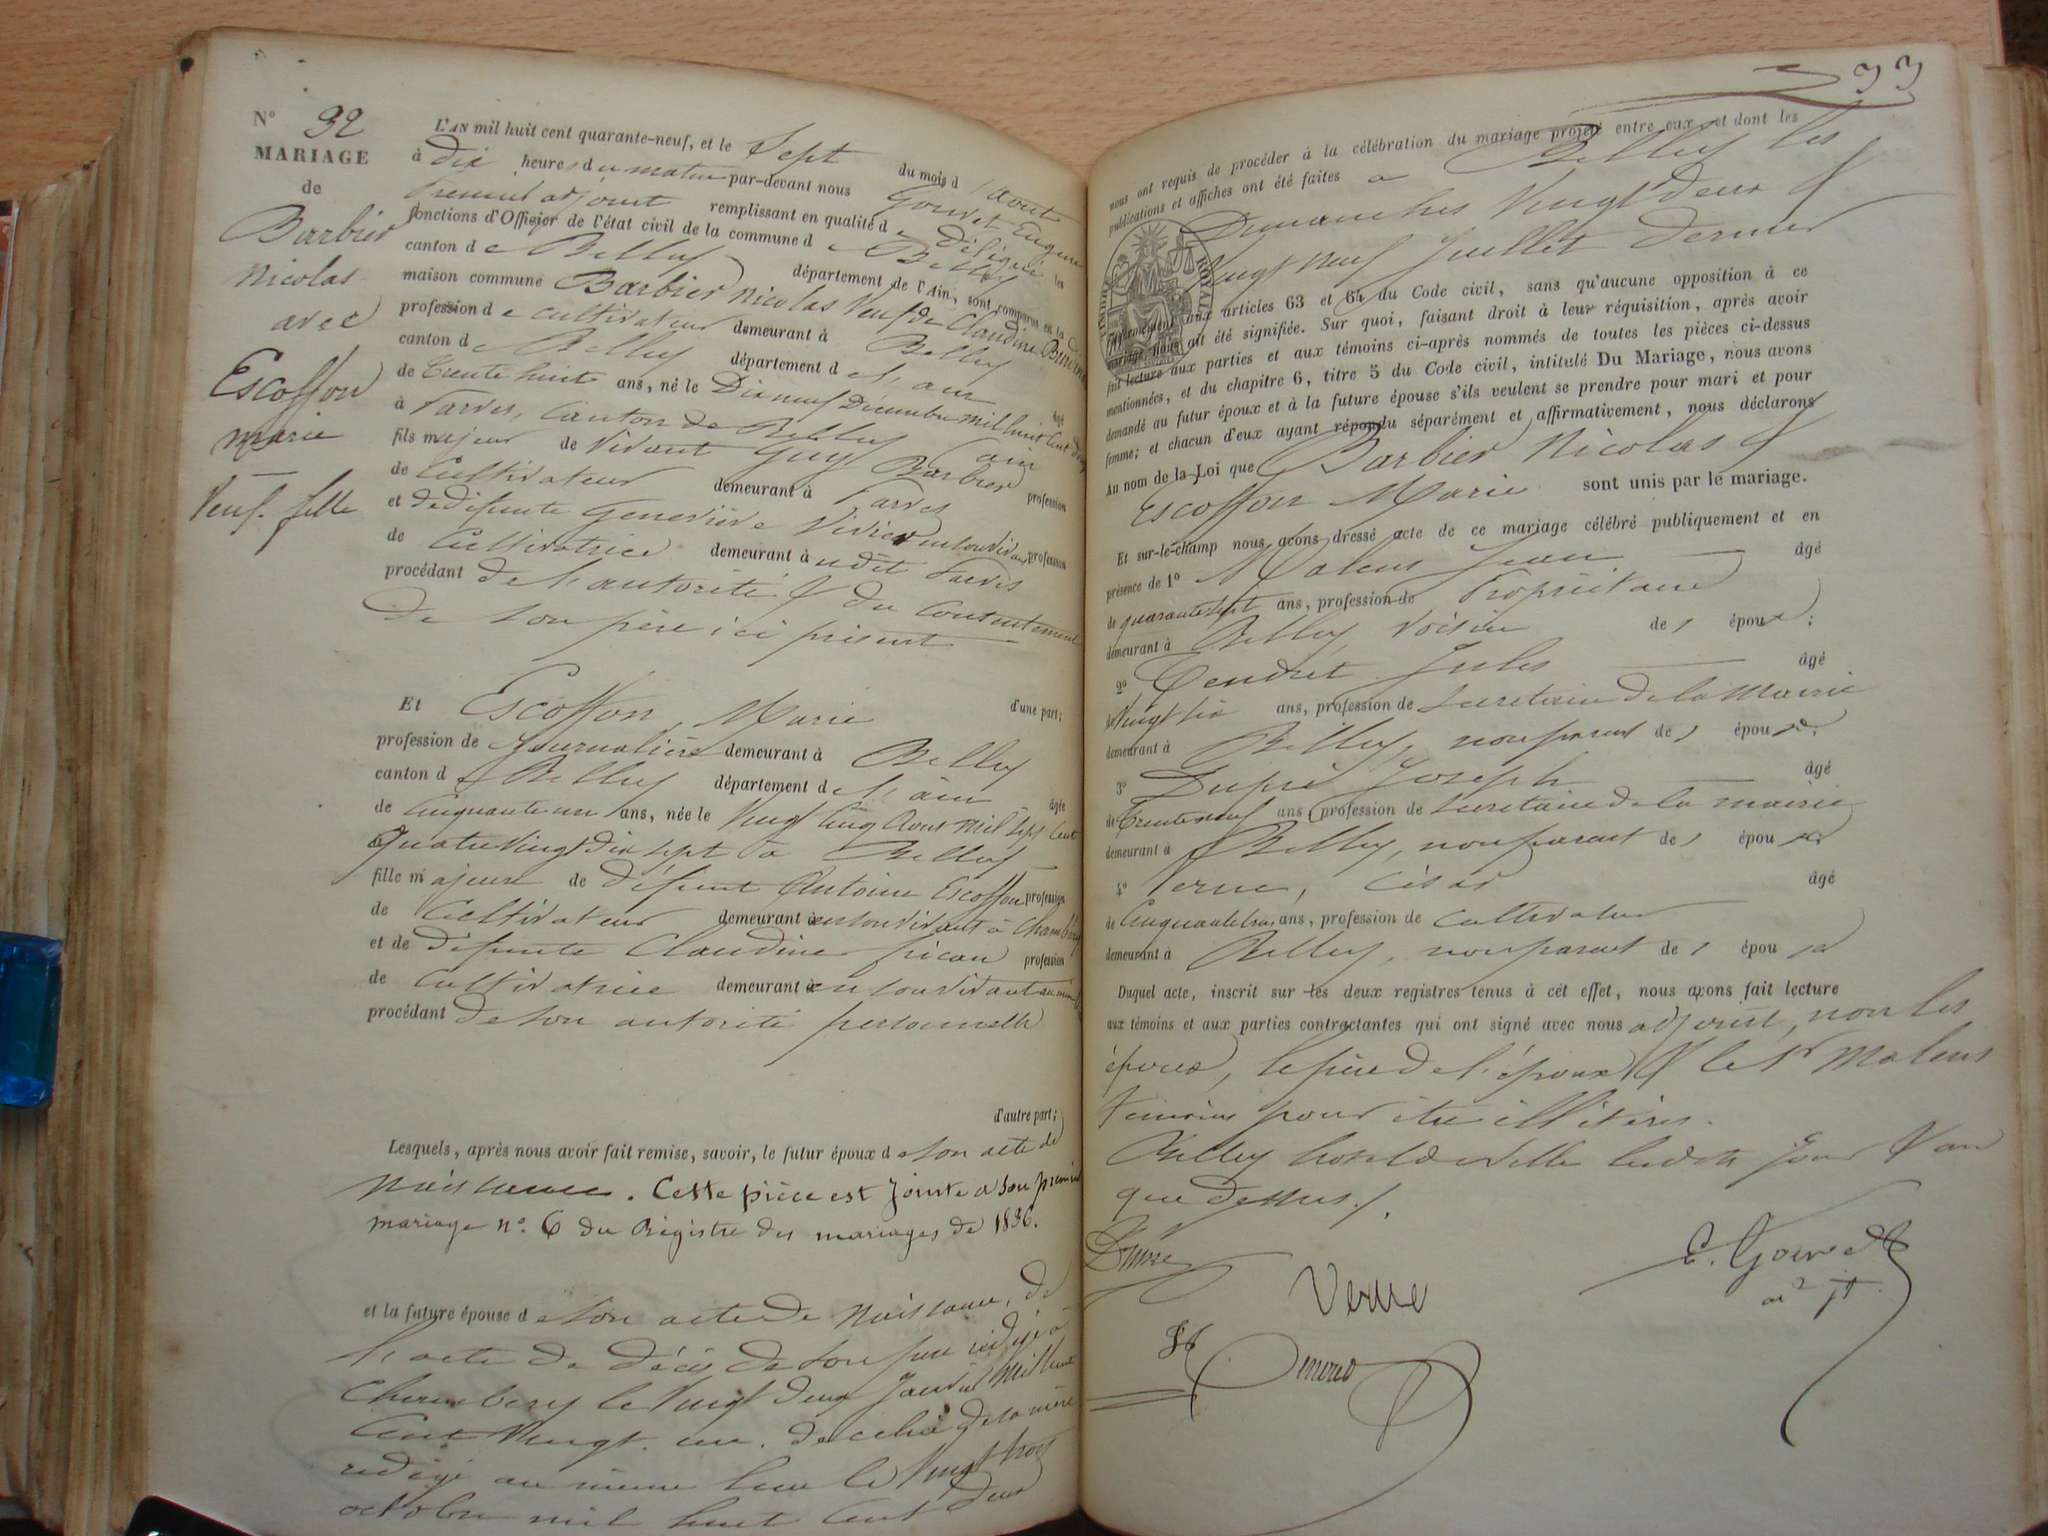 N° 32
MARIAGE
de
Barbier
Nicolas
avec
Escoffon
marie
Veuf. fille
L'AN mil huit cent quarante-neuf, et le Sept du mois d'Aout
à dix heures du matin par-devant nous Gouvet Eugène
Premier adjoint remplissant en qualité de Délégué les
fonctions d'Officier de l'état civil de la commune de Belley
canton de Belley département de l'Ain, sont comparus en la
maison commune Barbier Nicolas Veuf de Claudine
profession de cultivateur demeurant à Belley
canton de Belley département de l'ain âgé
de trente huit ans, né le Dix neuf Décembre mil huit cent dix
à Parves, Canton de Belley Ain
fils majeur de vivant Guy Barbier profession
de Cultivateur demeurant à Parves
et de défunte Geneviève Vivier en son vivant profession
de Cultivatrice demeurant à udit Parves
procédant de l'autorité & du Consentement
de son père ici présent
d'une part;
Et Escoffon, Marie
profession de Journalière demeurant à Belley
canton de Belley département de l'ain âgée
de Cinquante un ans, née le Vingt Cinq Aout mil sept Cent
Quatre Vingt Dix sept à Belley
fille majeure de défunt Antoine Escoffon profession
de Cultivateur demeurant à en son vivant à Chambéry
et de défunte Claudine picau profession
de Cultivatrice demeurant à en son vivant au même
procédant de son autorité personnelle
d'autre part;
Lesquels, après nous avoir fait remise, savoir, le futur époux de son acte de
Naissance. Cette pièce est jointe à son premier
mariage n°. 6 du Registre des mariages de 1836.
et la future épouse de son acte de Naissance, de
l'acte de décès de son père rédigé à
Chambéry le Vingt deux Janvier mil huit
Cent Vingt un. de celui de sa mère
rédigé au même lieu le Vingt trois
octobre mil huit Cent deux
33
nous ont requis de procéder à la célébration du mariage projeté entre eux et dont les
publications et affiches ont été faites à Belley les
Dimanches Vingt deux &
Vingt neuf Juillet dernier
conformément aux articles 63 et 64 du Code civil, sans qu'aucune opposition à ce
mariage nous ait été signifiée. Sur quoi, faisant droit à leur réquisition, après avoir
fait lecture aux parties et aux témoins ci-après nommés de toutes les pièces ci-dessus
mentionnées, et du chapitre 6, titre 5 du Code civil, intitulé Du Mariage, nous avons
demandé au futur époux et à la future épouse s'ils veulent se prendre pour mari et pour
femme; et chacun d'eux ayant répondu séparément et affirmativement, nous déclarons
Au nom de la Loi que Barbier Nicolas &
Escoffon Marie sont unis par le mariage.
Et sur-le-champ nous avons dressé acte de ce mariage célébré publiquement et en
présence de 1° Malens Jean âgé
de quarante sept ans, profession de Propriétaire
demeurant à Belley, voisin des époux;
2° Tendret Jules âgé
de Vingt six ans, profession de secrétaire de la Mairie
demeurant à Belley, non parent des époux.
3° Dupré Joseph âgé
de Trente neuf ans, profession de secrétaire de la mairie
demeurant à Belley, non parent des époux
4° Verne, César âgé
de Cinquante trois ans, profession de cultivateur
demeurant à Belley, non parent des époux
Duquel acte, inscrit sur les deux registres tenus à cet effet, nous avons fait lecture
aux témoins et aux parties contractantes qui ont signé avec nous adjoint, non les
époux, le père de l'époux & le Sr Malens
témoins pour être illitérés.
Belley hotel de ville lesdits jour & an
que dessus.
Verne
E. Gouvet
adjt